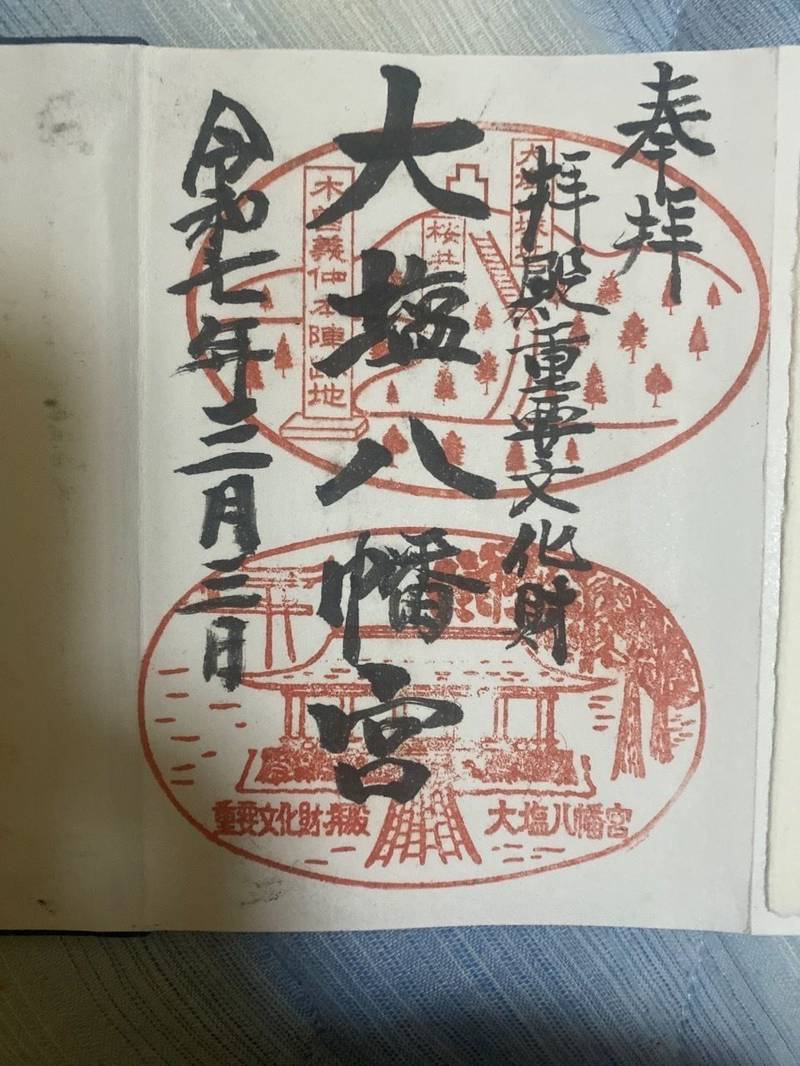 奉拝
拝殿重要文化財
大塩八幡宮
令和七年三月三日
木曽義仲本陣
地
重要文化財拝殿
大塩八幡宮